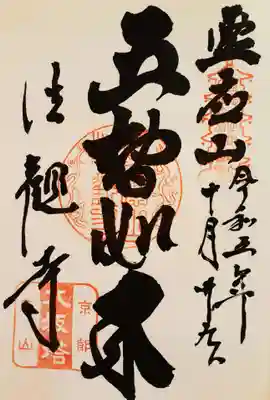 霊応山
令和五年
十月廿
五智如来
法観寺
京都
八坂塔